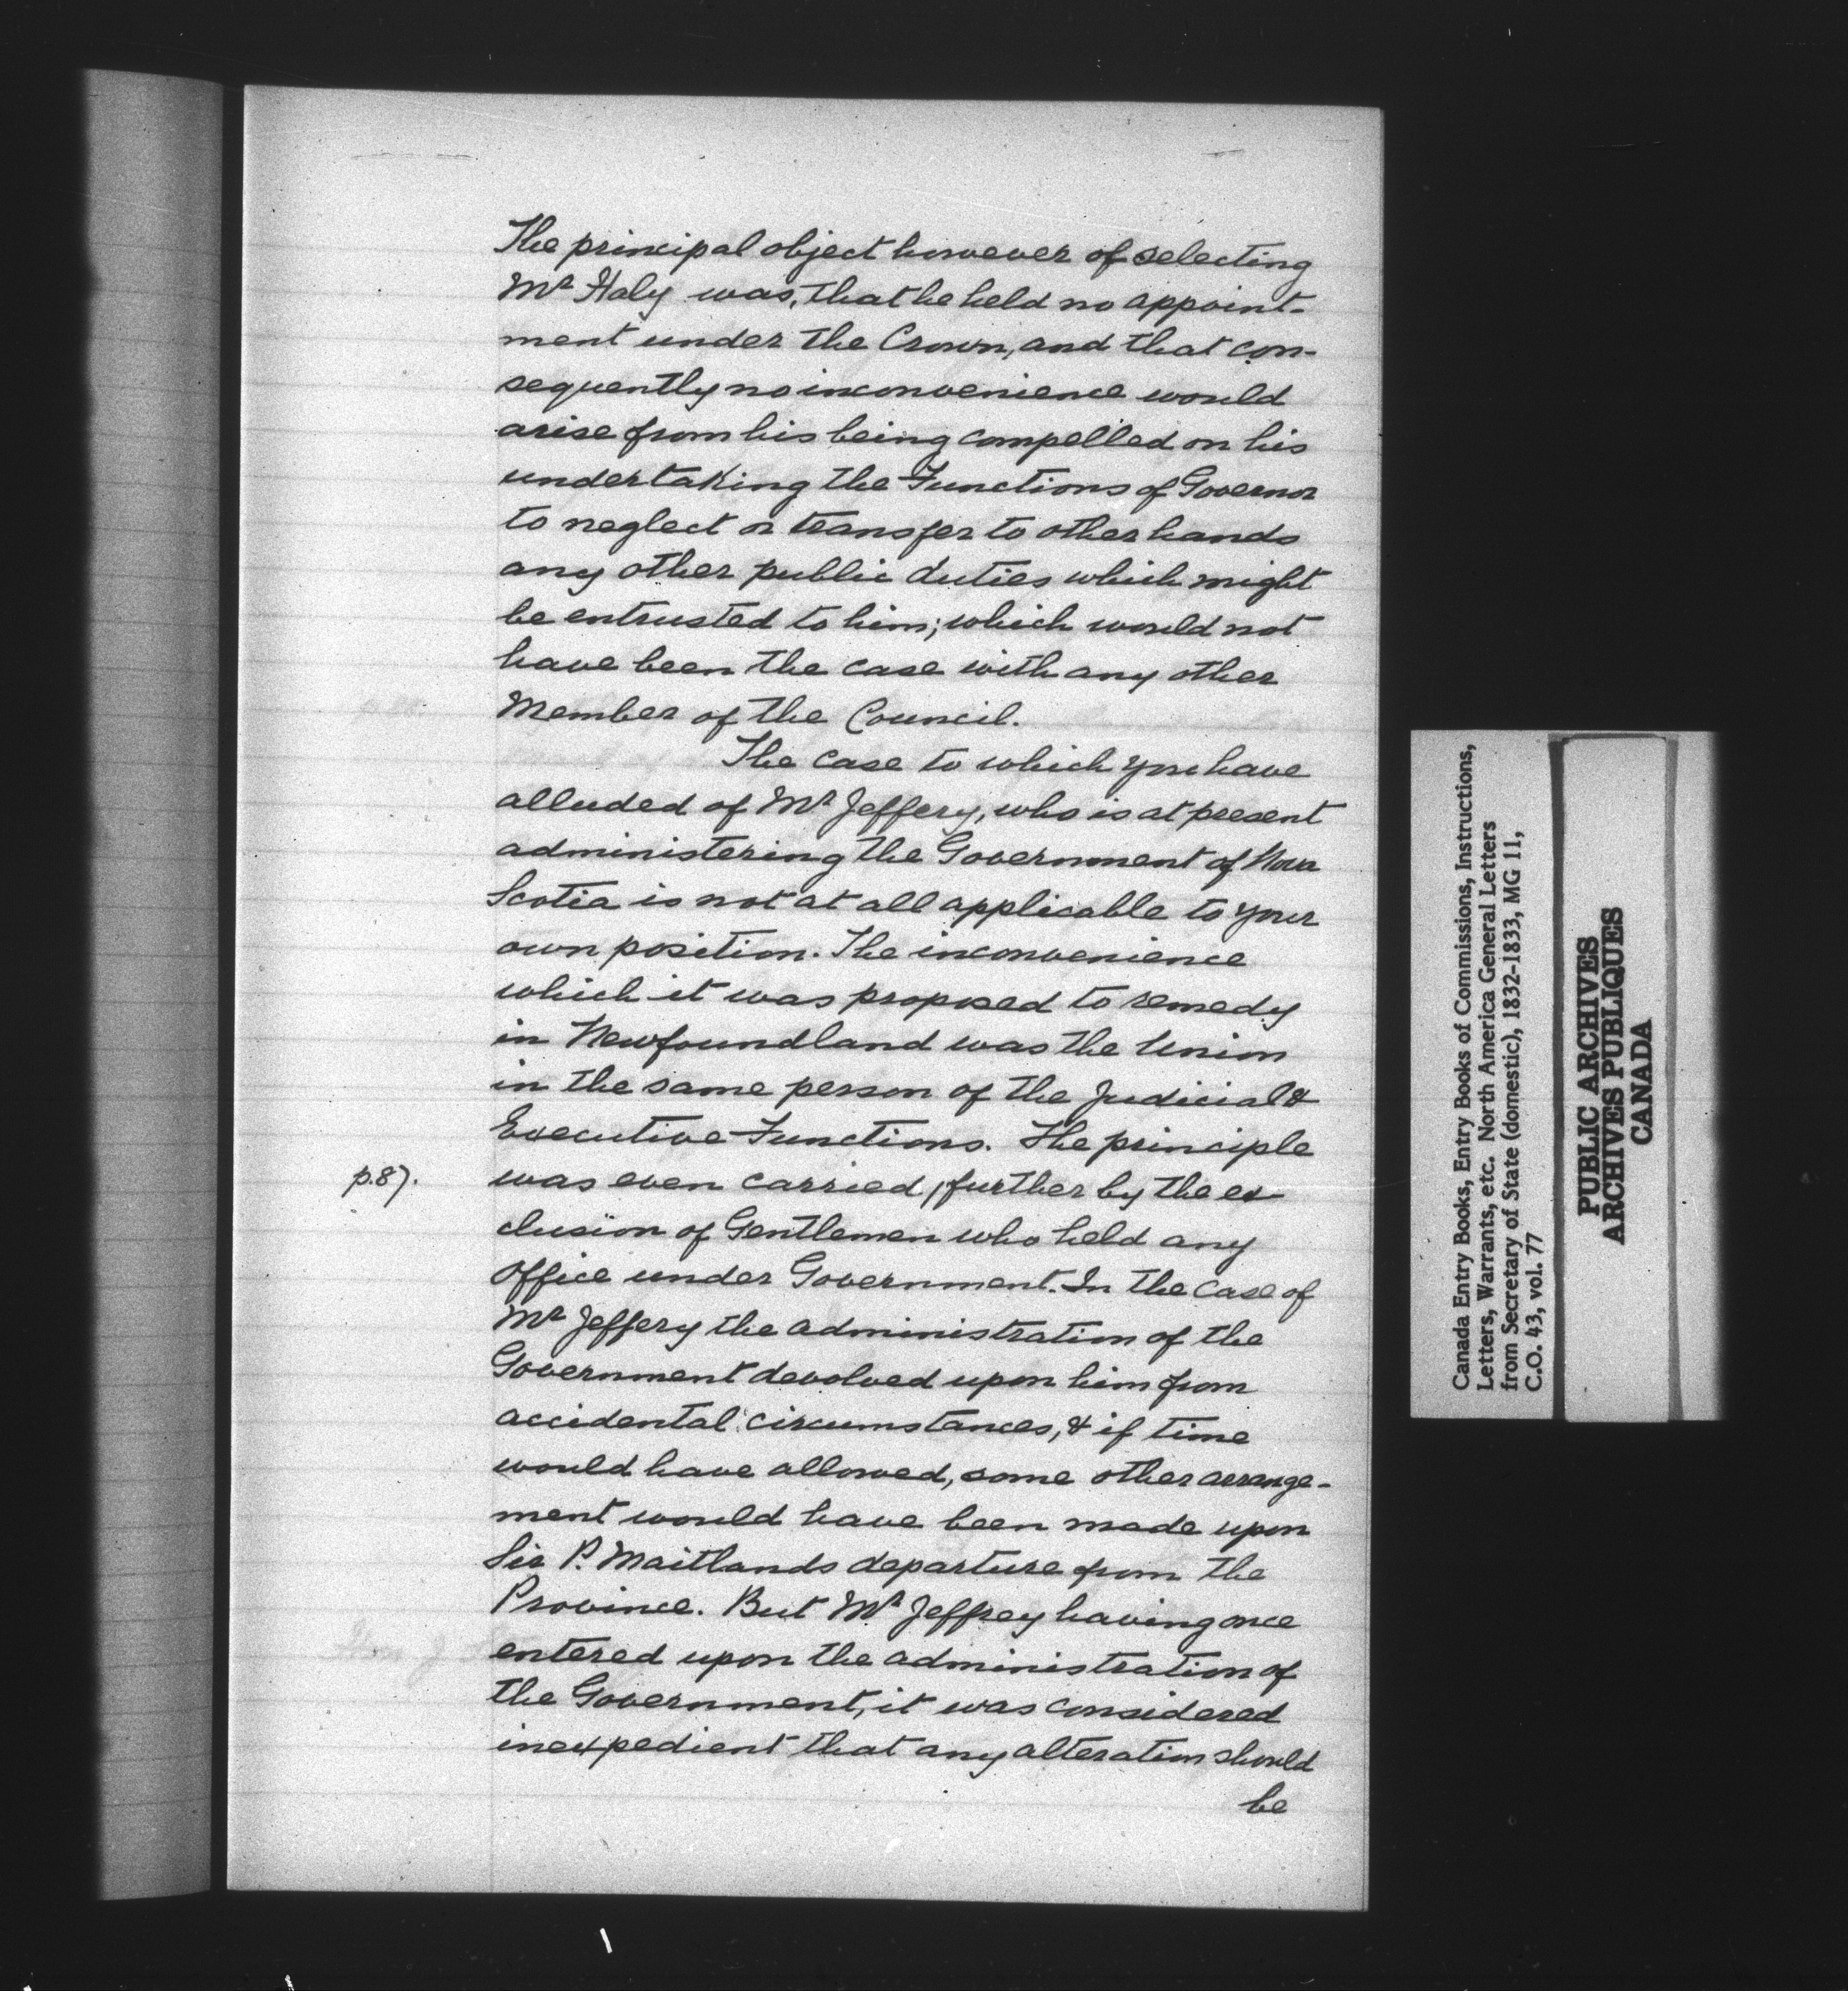 The principal object however of selecting
Mr Haly was, that he held no appoint-
ment under the Crown, and that con-
sequently no inconvenience would
arise from his being compelled on his
undertaking the Functions of Governor
to neglect or transfer to other hands
any other public duties which might
be entrusted to him; which would not
have been the case with any other
Member of the Council.
The case to which you have
alluded of Mr Jeffery, who is at present
administering the Government of Nova
Scotia is not at all applicable to your
own position. The inconvenience
which it was proposed to remedy
in Newfoundland was the Union
in the same person of the Judicial &
Executive Functions. The principle
p.87.
was even carried, further by the ex-
clusion of Gentlemen who held any
Office under Government. In the case of
Mr Jeffery the administration of the
Government devolved upon him from
accidental circumstances, & if time
would have allowed, some other arrange-
ment would have been made upon
Sir P. Maitlands departure from the
Province. But Mr Jeffrey having once
entered upon the administration of
the Government, it was considered
inexpedient that any alteration should
be
Canada Entry Books, Entry Books of Commissions, Instructions,
Letters, Warrants, etc. North America General Letters
from Secretary of State (domestic), 1832-1833, MG 11,
C.O. 43, vol. 77
PUBLIC ARCHIVES
ARCHIVES PUBLIQUES
CANADA